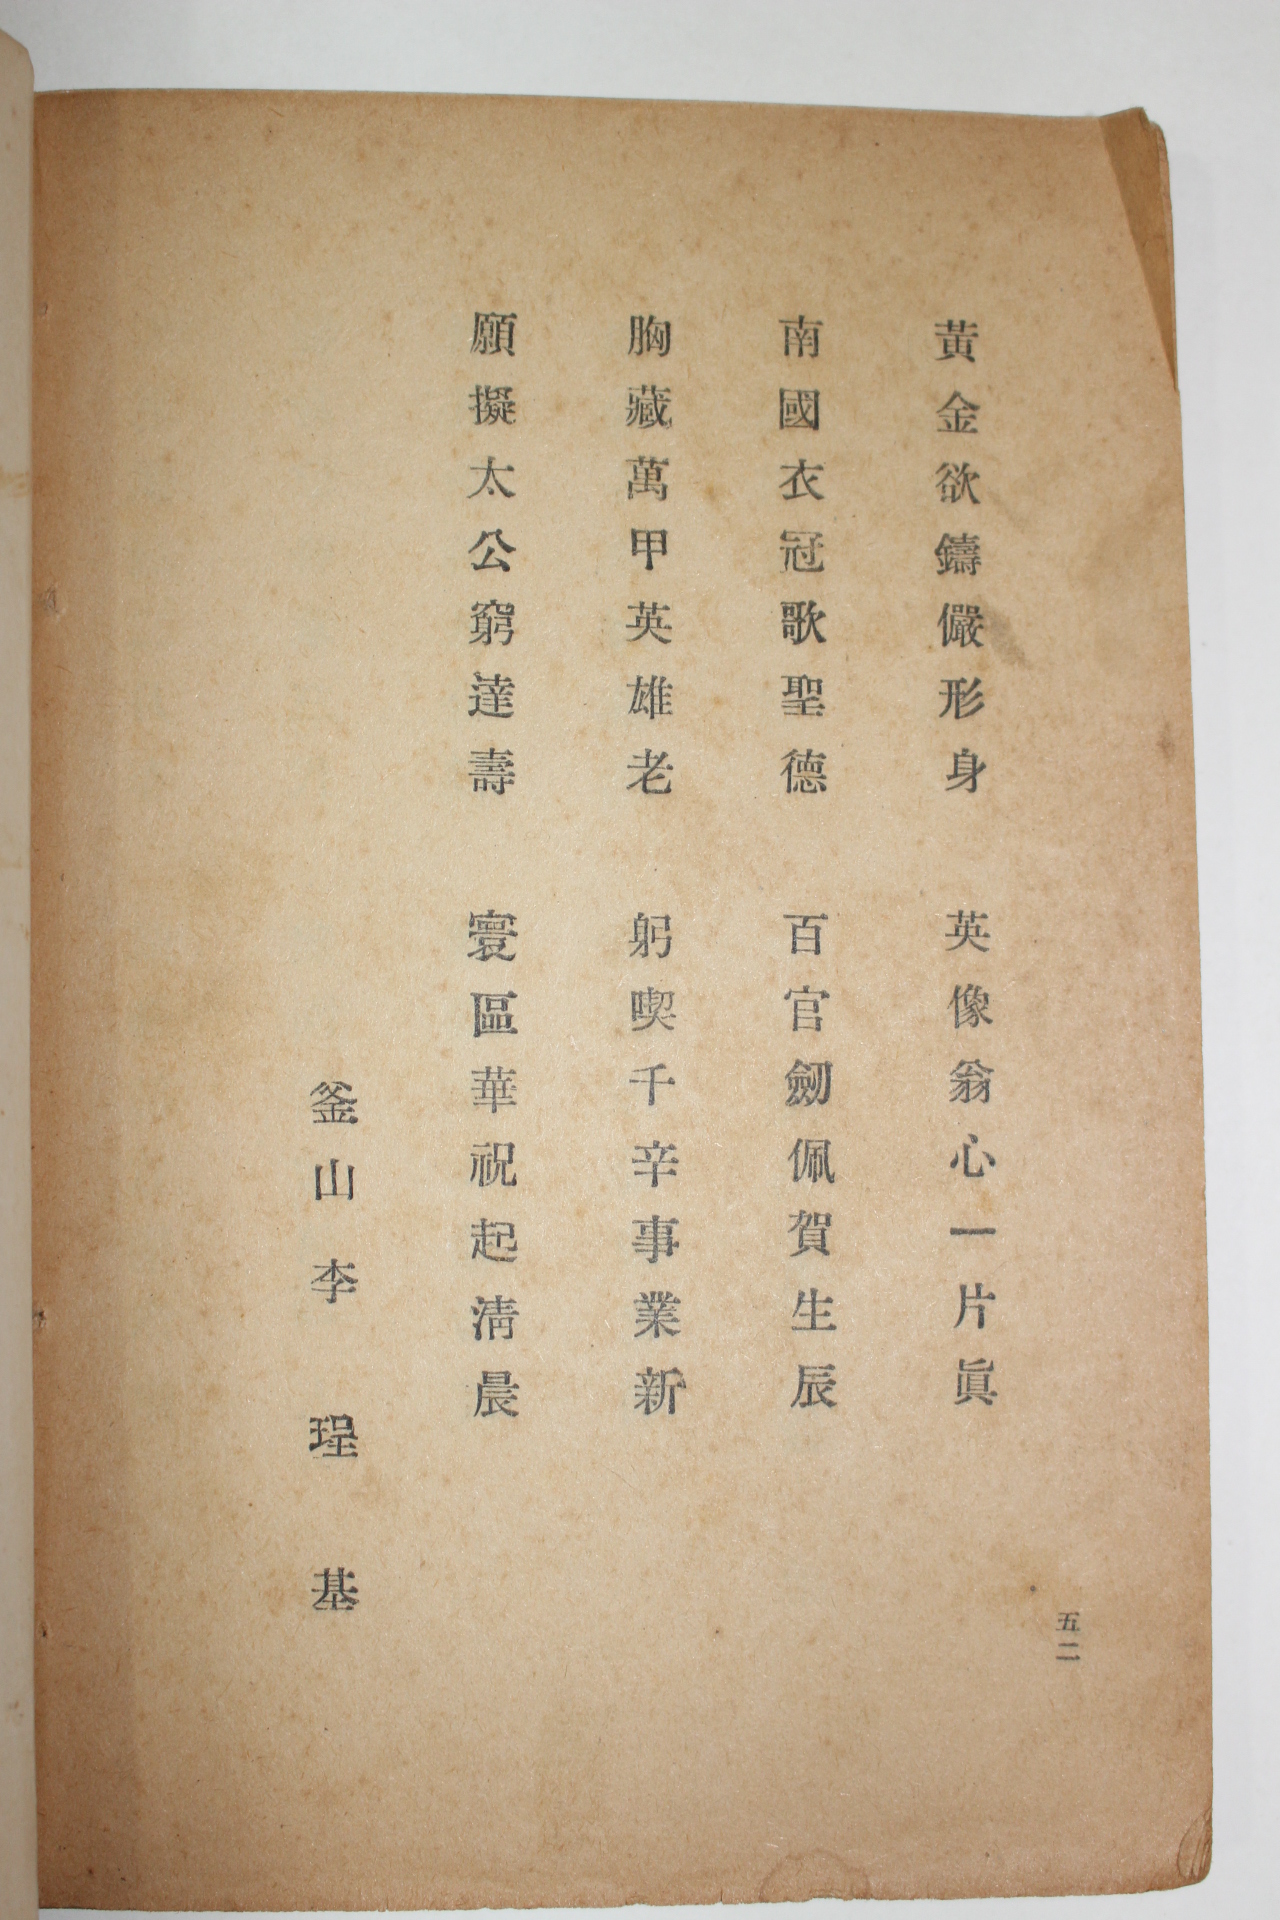 黃金欲鑄儼形身　英像翁心一片眞
南國衣冠歌聖德　百官劒佩賀生辰
胸藏萬甲英雄老　躬喫千辛事業新
願擬太公窮達壽　寰區華祝起淸晨
釜山李　珵　基
五二